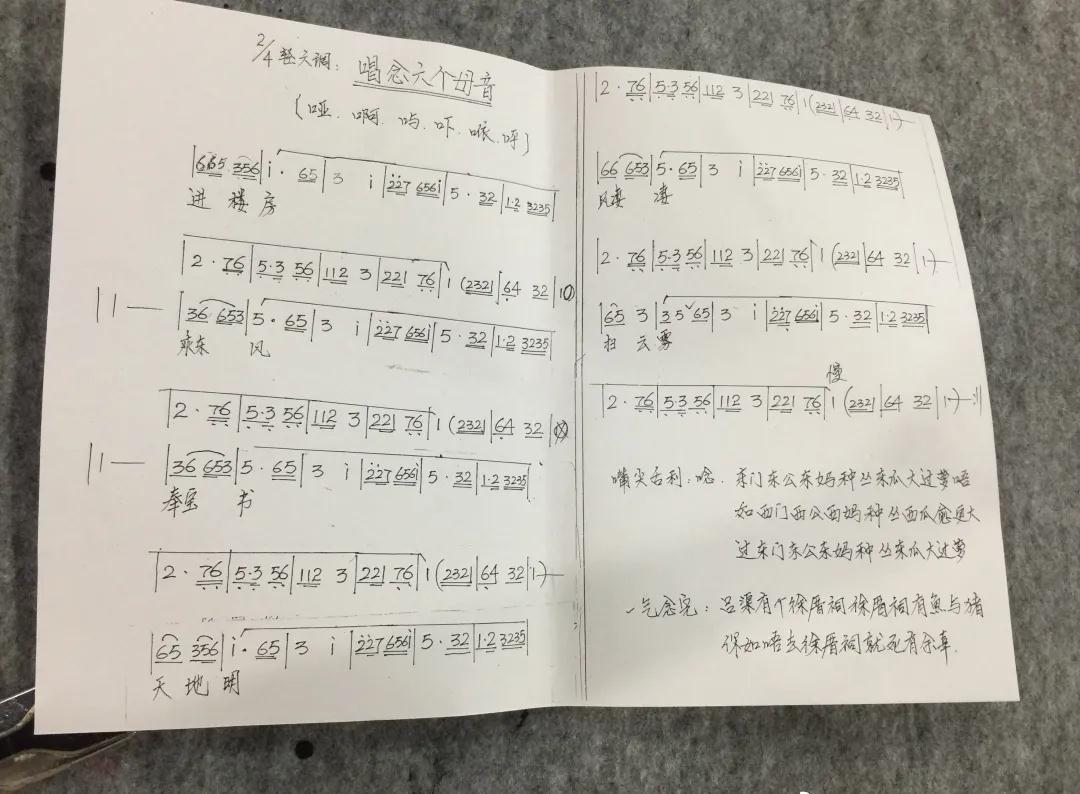 2/4 轻六调：唱念六个母音
（哑．啊．呜．吓．嗾．呼）
|6̲6̲5 3̲5̲6̲|i· 65|3 i|2̲2̲7 656i|5· 32|1·2 3235|
进 楼 房
|2· 76|5·3 56|112 3|221 76|1 (2321|64 32|10)
||— |36 653|5· 65|3 i|227 656i|5· 32|1·2 3235|
乘东 风
|2· 76|5·3 56|112 3|221 76|1 (2321|64 32|
||— |36 653|5· 65|3 i|227 656i|5· 32|1·2 3235|
奉宝 书
|2· 76|5·3 56|112 3|221 76|1 (2321|64 32|1)—
|65 356|i· 65|3 i|227 656i|5· 32|1·2 3235|
天 地 明
|2· 76|5·3 56|112 3|221 76|1 (2321|64 32|1)—
|66 653|5· 65|3 i|227 656i|5· 32|1·2 3235|
风凄 凄
|2· 76|5·3 56|112 3|221 76|1 (2321|64 32|1—
|65 3|35ˇ65|3 i|227 656i|5· 32|1·2 3235|
扫 云雾
慢
|2· 76|5·3 56|112 3|221 76|1 (2321|64 32|1—):||
嘴尖舌利：唸．东门东公东妈种丛东瓜大过萝唔
如西门西公西妈种丛西瓜愈更大
过东门东公东妈种丛东瓜大过萝
一气念完：吕渠有个徐厝祠徐厝祠有鱼与猪
你如唔去徐厝祠就无有余车．